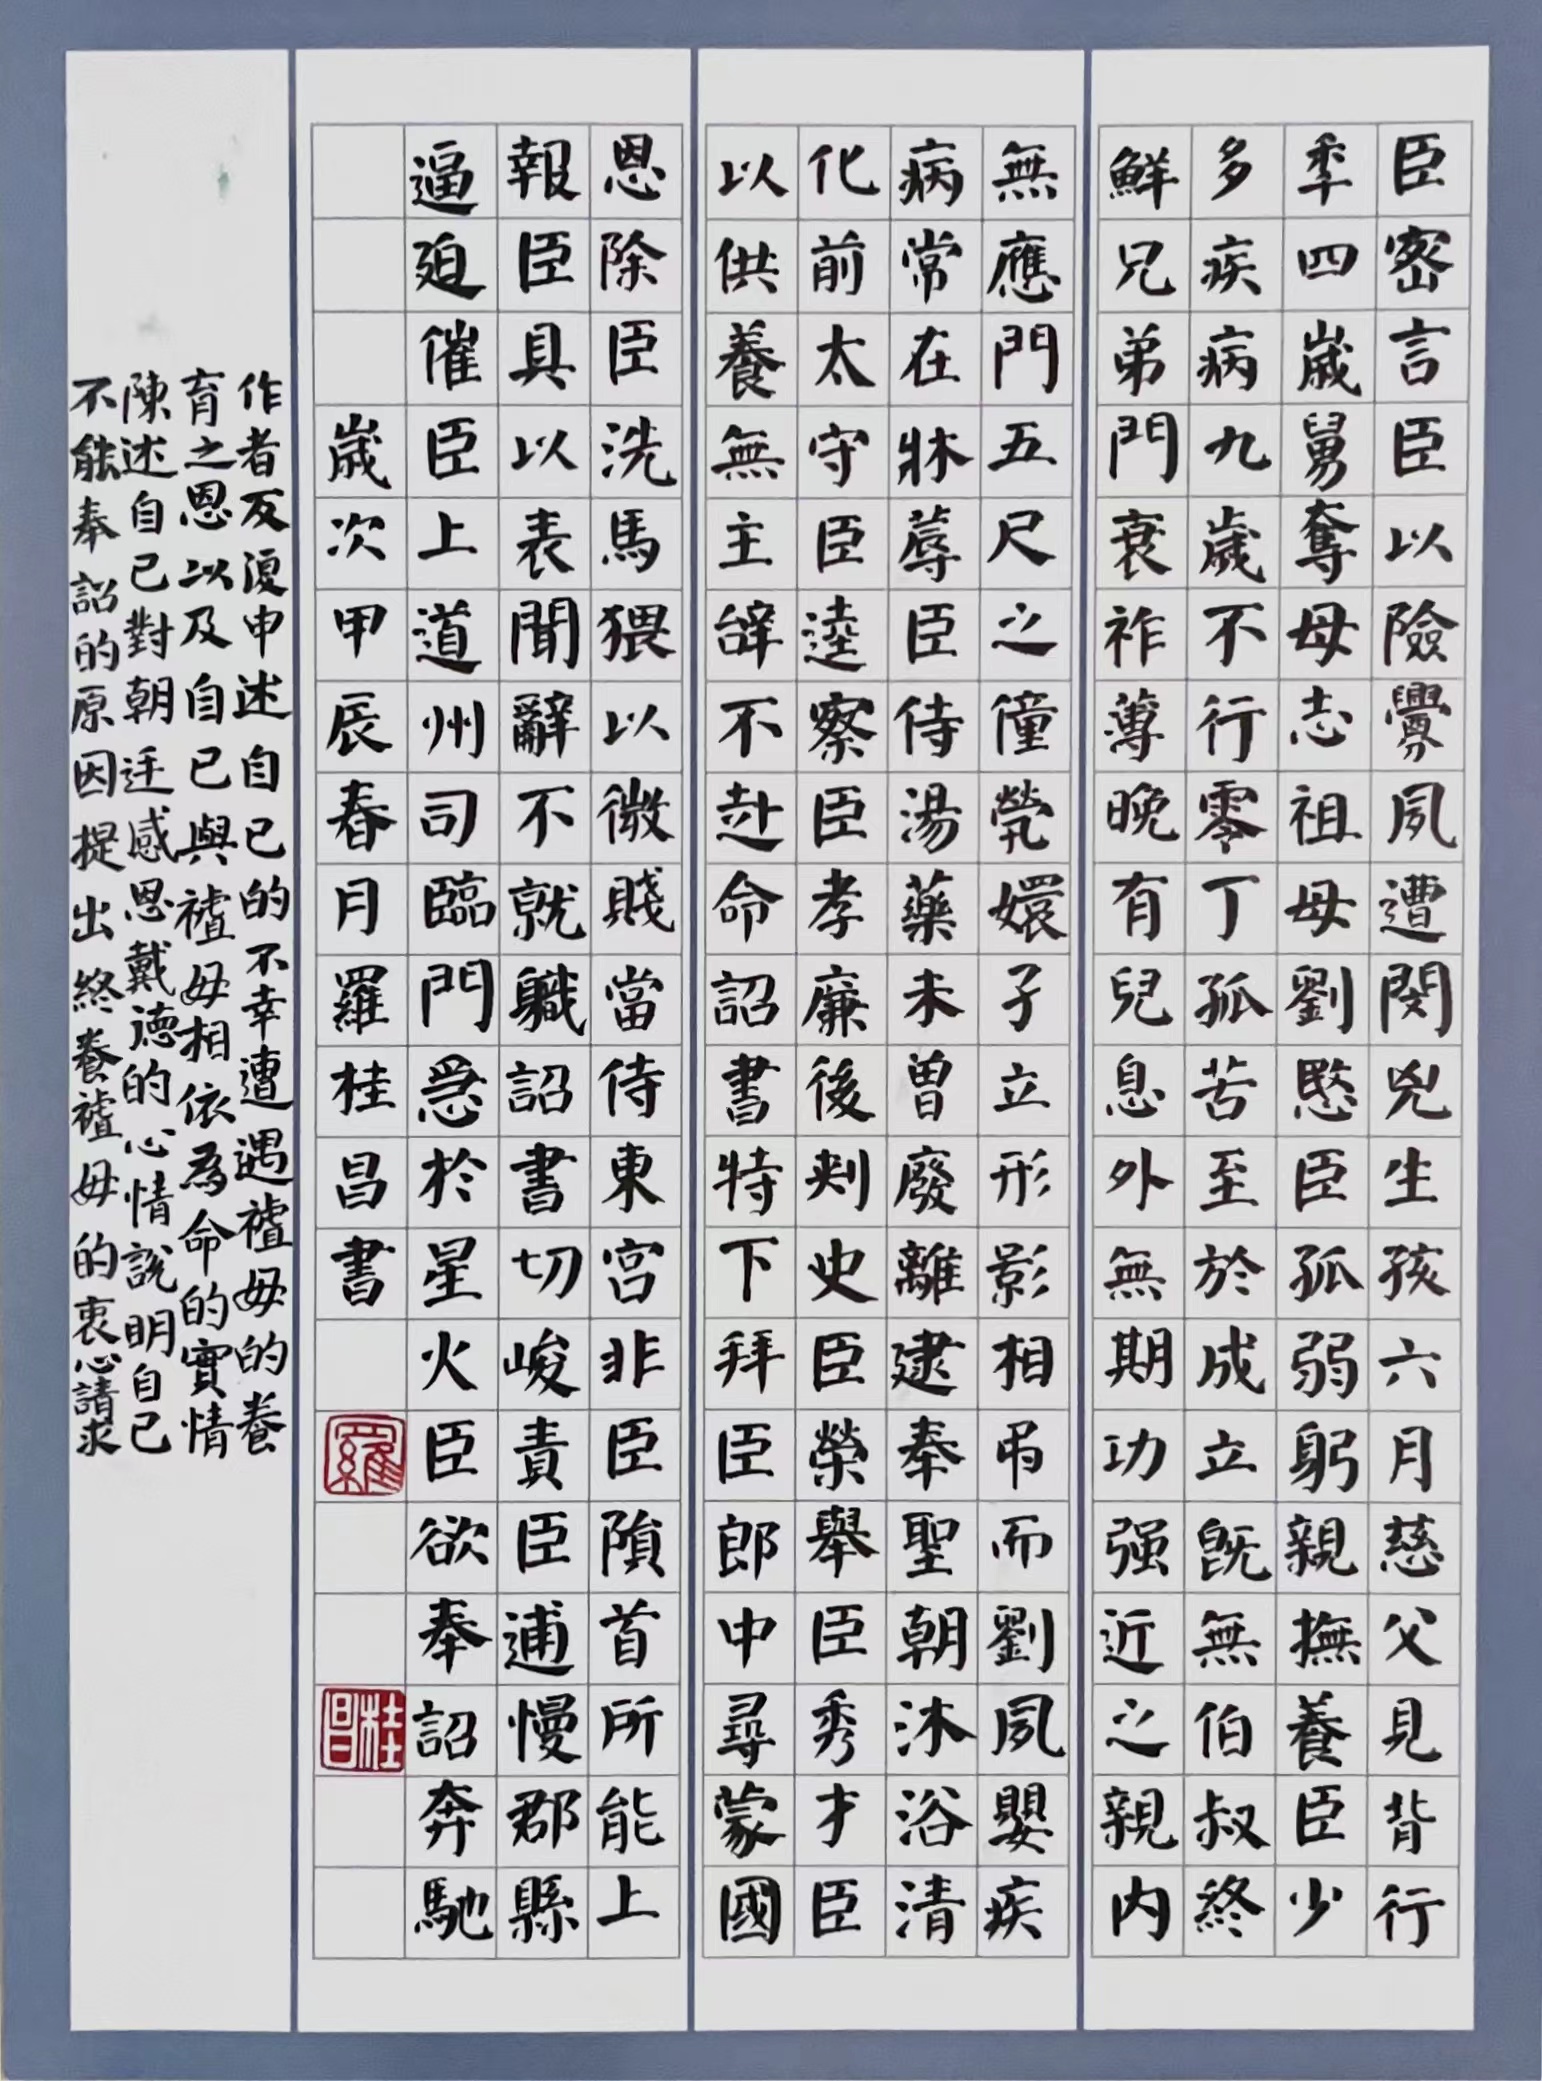 臣密言臣以險釁夙遭閔兇生孩六月慈父見背行
秊四歲舅奪母志祖母劉愍臣孤弱躬親撫養臣少
多疾病九歲不行零丁孤苦至於成立既無伯叔終
鮮兄弟門衰祚薄晚有兒息外無期功强近之親内
無應門五尺之僮煢嬛孑立形影相吊而劉夙嬰疾
病常在牀蓐臣侍湯藥未曾廢離逮奉聖朝沐浴清
化前太守臣逵察臣孝廉後刺史臣榮舉臣秀才臣
以供養無主辭不赴命詔書特下拜臣郎中尋蒙國
恩除臣洗馬猥以微賤當侍東宮非臣隕首所能上
報臣具以表聞辭不就職詔書切峻責臣逋慢郡縣
逼迫催臣上道州司臨門急於星火臣欲奉詔奔馳
歲次甲辰春月羅桂昌書
羅
桂昌
作者反復申述自己的不幸遭遇禮母的養
育之恩以及自己與禮母相依為命的實情
陳述自己對朝廷感恩戴德的心情說明自己
不能奉詔的原因提出終養禮母的衷心請求